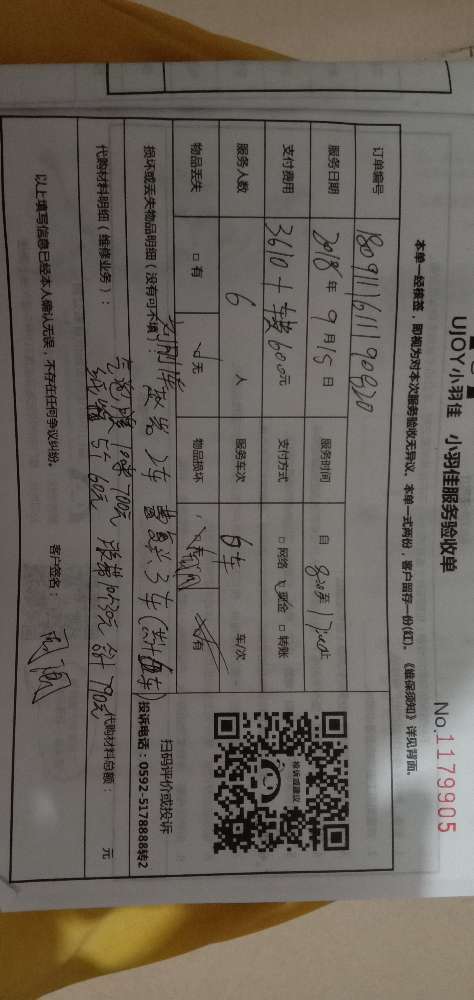 UJOY小羽佳 小羽佳服务验收单
No.1179905
本单一经核签，即视为对本次服务验收无异议，本单一式两份，客户留存一份(红)。《维保须知》详见背面。
订单编号
服务日期 2018 年 9 月 15 日 服务时间 自 8:00至 17:00止
支付费用 3610+ 600元 支付方式 □网络 现金 □转账
服务人数 6 人 服务车次 6车 车/次
物品丢失 □有 无 物品损坏 有
损坏或丢失物品明细（没有可不填）： 2车 3车
扫码评价或投诉
投诉电话：0592-5178888转2
投诉或建议
代购材料明细（维修业务）： 气泡膜 700元 纸箱 5个 60元 790元 代购材料总额： 元
以上填写信息已经本人确认无误，不存在任何争议纠纷。 客户签名：